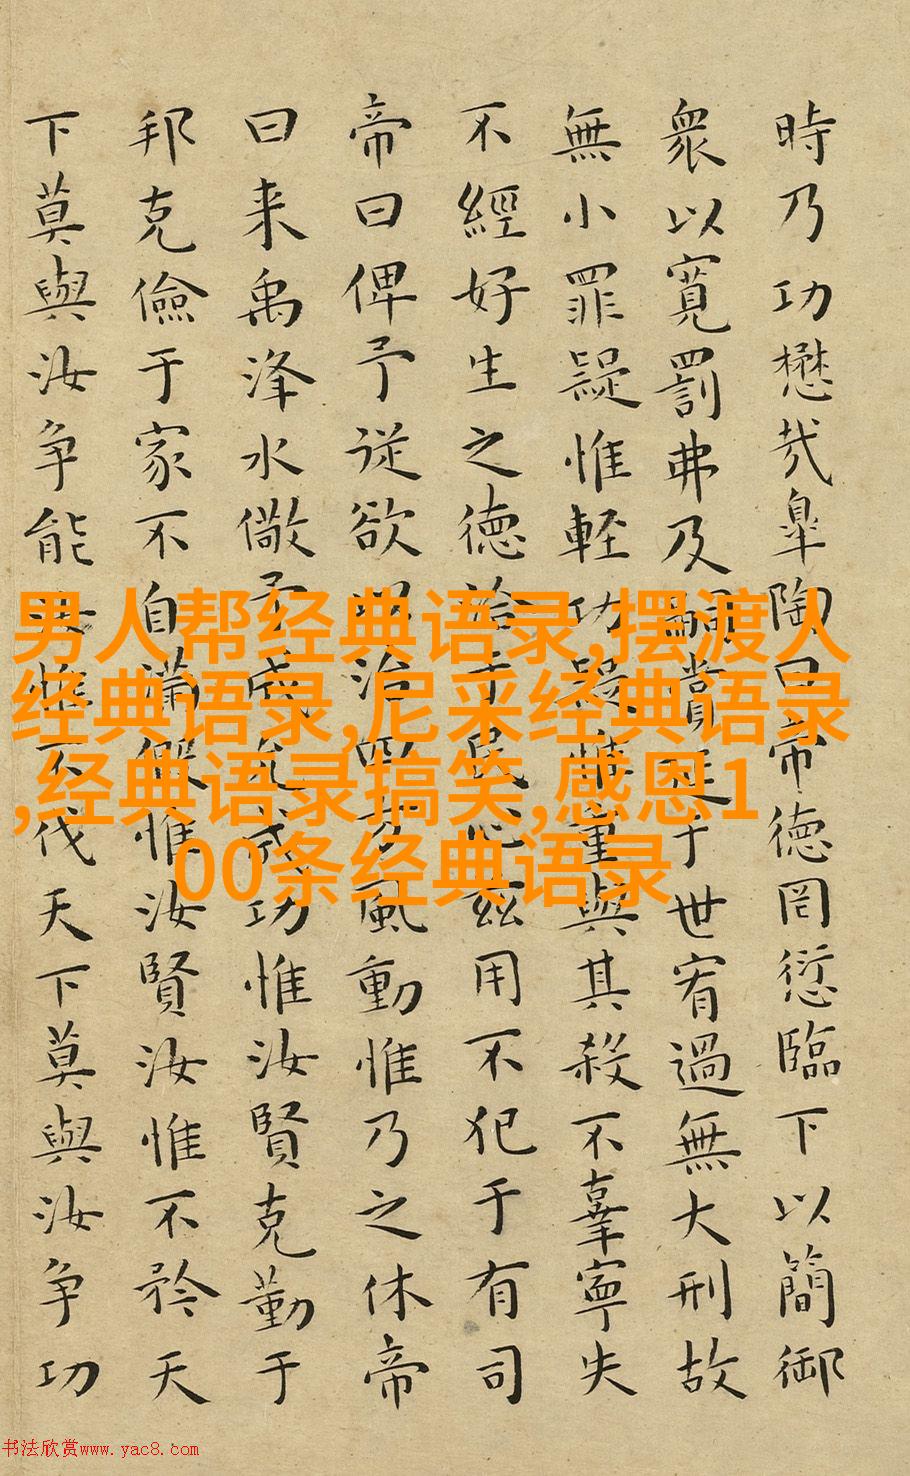 時乃功懋哉皐陶曰帝德罔愆臨下以簡御
衆以寬罰弗及嗣賞延于世宥過無大刑故
無小罪疑惟輕功疑惟重與其殺不辜寧失
不經好生之德洽于民心兹用不犯于有司
帝曰俾予従欲以治四方風動惟乃之休帝
曰来禹洚水儆予成允成功惟汝賢克勤于
邦克儉于家不自滿假惟汝賢汝惟不矜天
下莫與汝争能惟不伐天下莫與汝争功
男人帮经典语录,摆渡人
经典语录,尼采经典语录
,经典语录搞笑,感恩1
00条经典语录
书法欣赏www.yac8.com